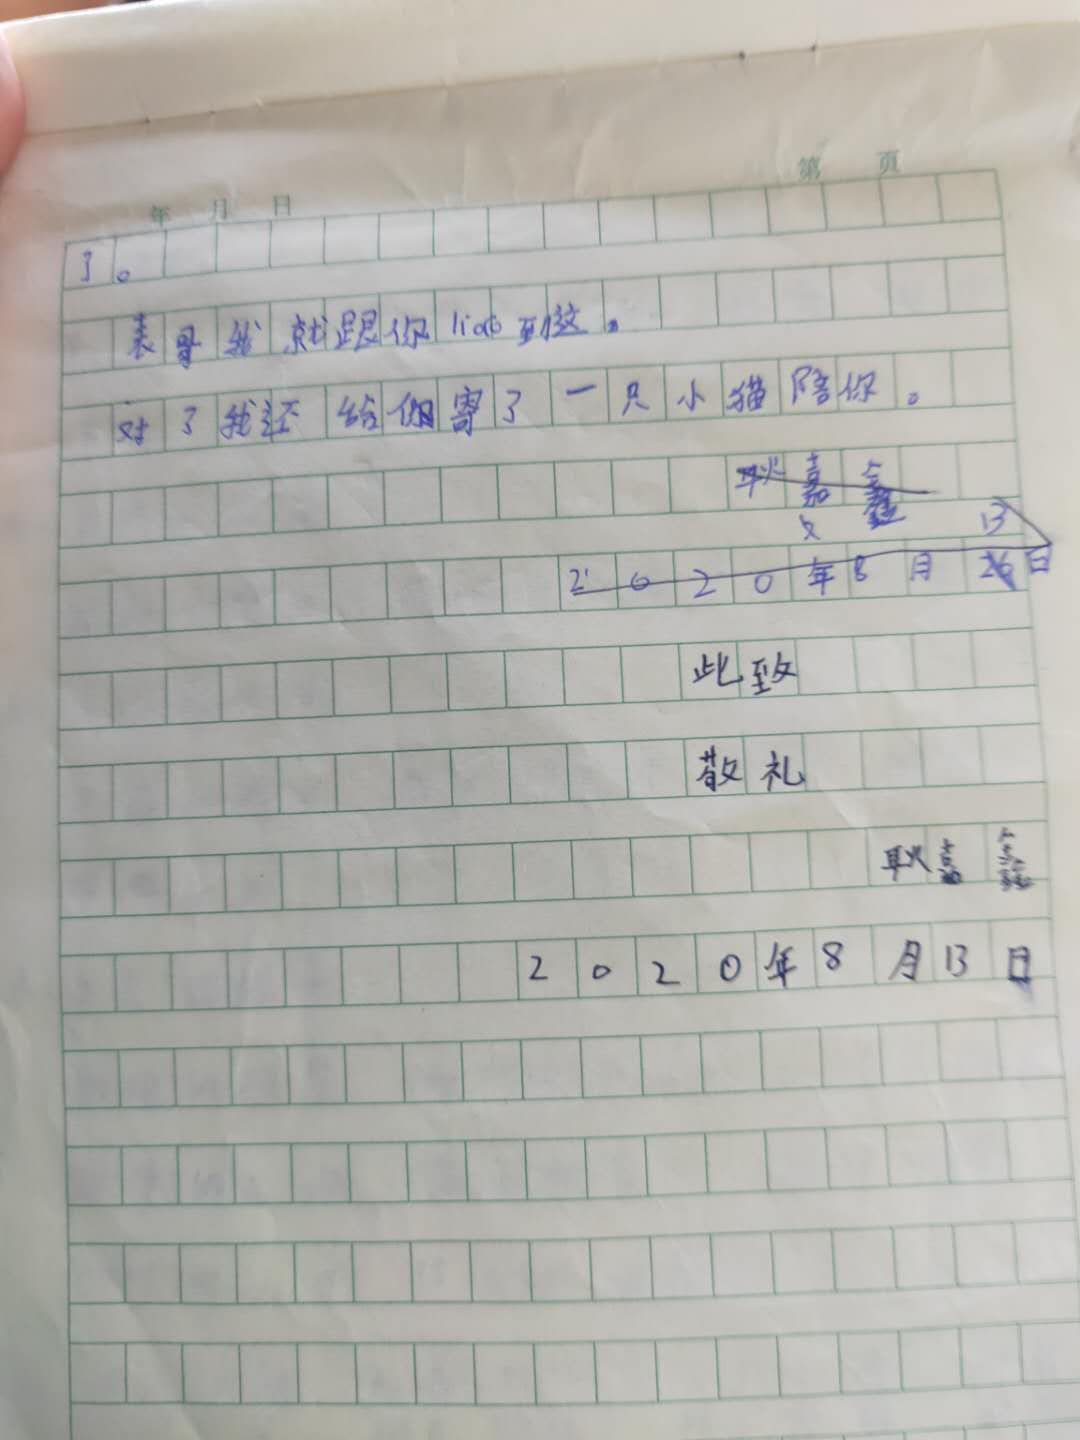 年 月 日 第 页
了。
表哥我就跟你liao到这。
对了我还给你寄了一只小猫陪你。
耿嘉鑫
13
2020年8月26日
此致
敬礼
耿嘉鑫
2020年8月13日